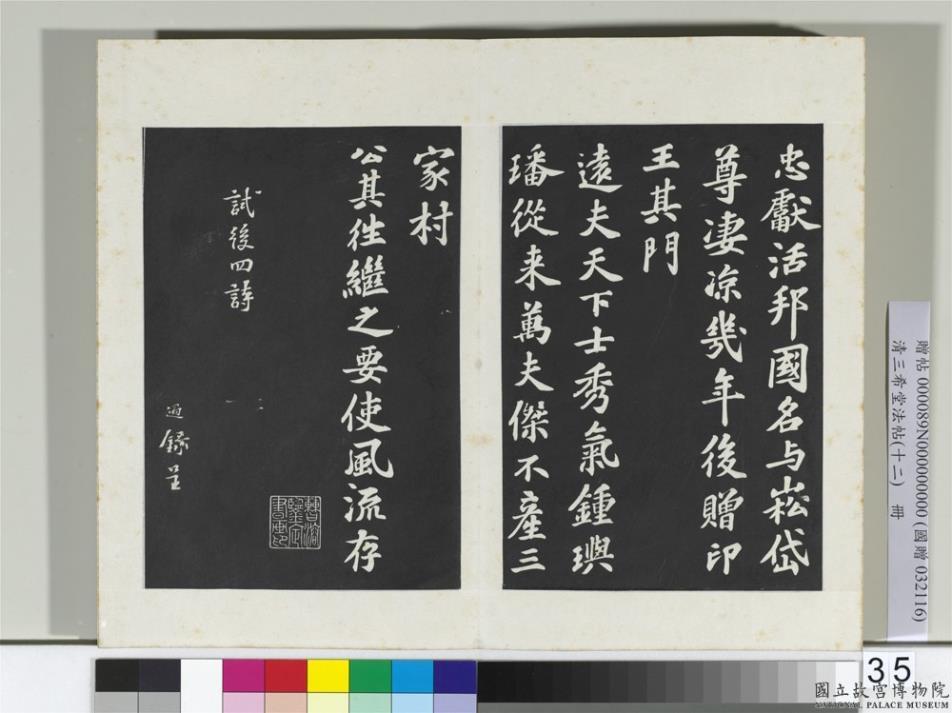 忠獻活邦國名与崧岱
尊凄涼幾年後贈印
王其門
遠夫天下士秀氣鍾璵
璠從来萬夫傑不產三
家村
公其徃繼之要使風流存
試後四詩
過録呈
贈帖 000089N000000000 (國贈 032116)
清三希堂法帖(十二) 冊
35
國立故宮博物院
NATIONAL PALACE MUSEUM